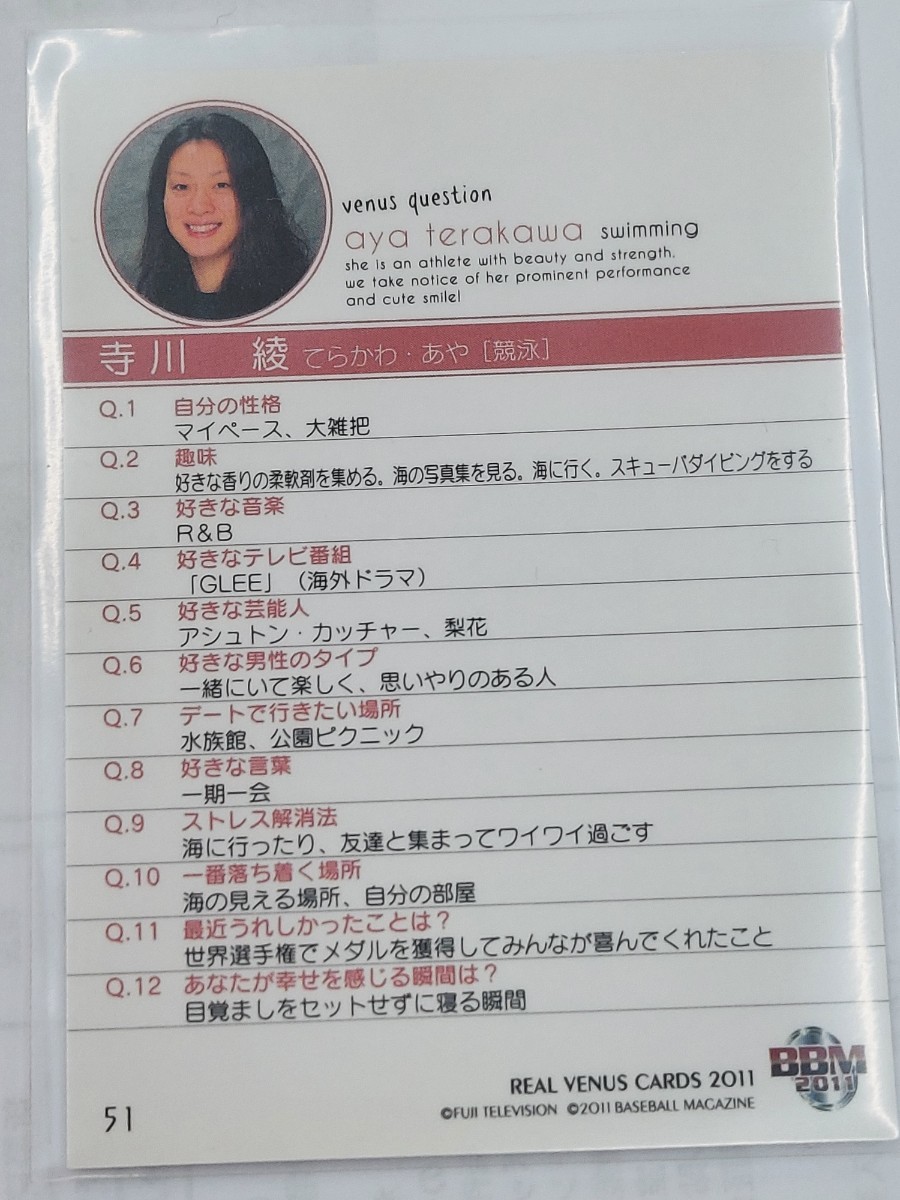 venus question
aya terakawa swimming
she is an athlete with beauty and strength.
we take notice of her prominent performance
and cute smile!
寺川 綾 てらかわ・あや [競泳]
Q.1 自分の性格
マイペース、大雑把
Q.2 趣味
好きな香りの柔軟剤を集める。海の写真集を見る。海に行く。スキューバダイビングをする
Q.3 好きな音楽
R&B
Q.4 好きなテレビ番組
「GLEE」（海外ドラマ）
Q.5 好きな芸能人
アシュトン・カッチャー、梨花
Q.6 好きな男性のタイプ
一緒にいて楽しく、思いやりのある人
Q.7 デートで行きたい場所
水族館、公園ピクニック
Q.8 好きな言葉
一期一会
Q.9 ストレス解消法
海に行ったり、友達と集まってワイワイ過ごす
Q.10 一番落ち着く場所
海の見える場所、自分の部屋
Q.11 最近うれしかったことは？
世界選手権でメダルを獲得してみんなが喜んでくれたこと
Q.12 あなたが幸せを感じる瞬間は？
目覚ましをセットせずに寝る瞬間
BBM
2011
REAL VENUS CARDS 2011
©FUJI TELEVISION ©2011 BASEBALL MAGAZINE
51